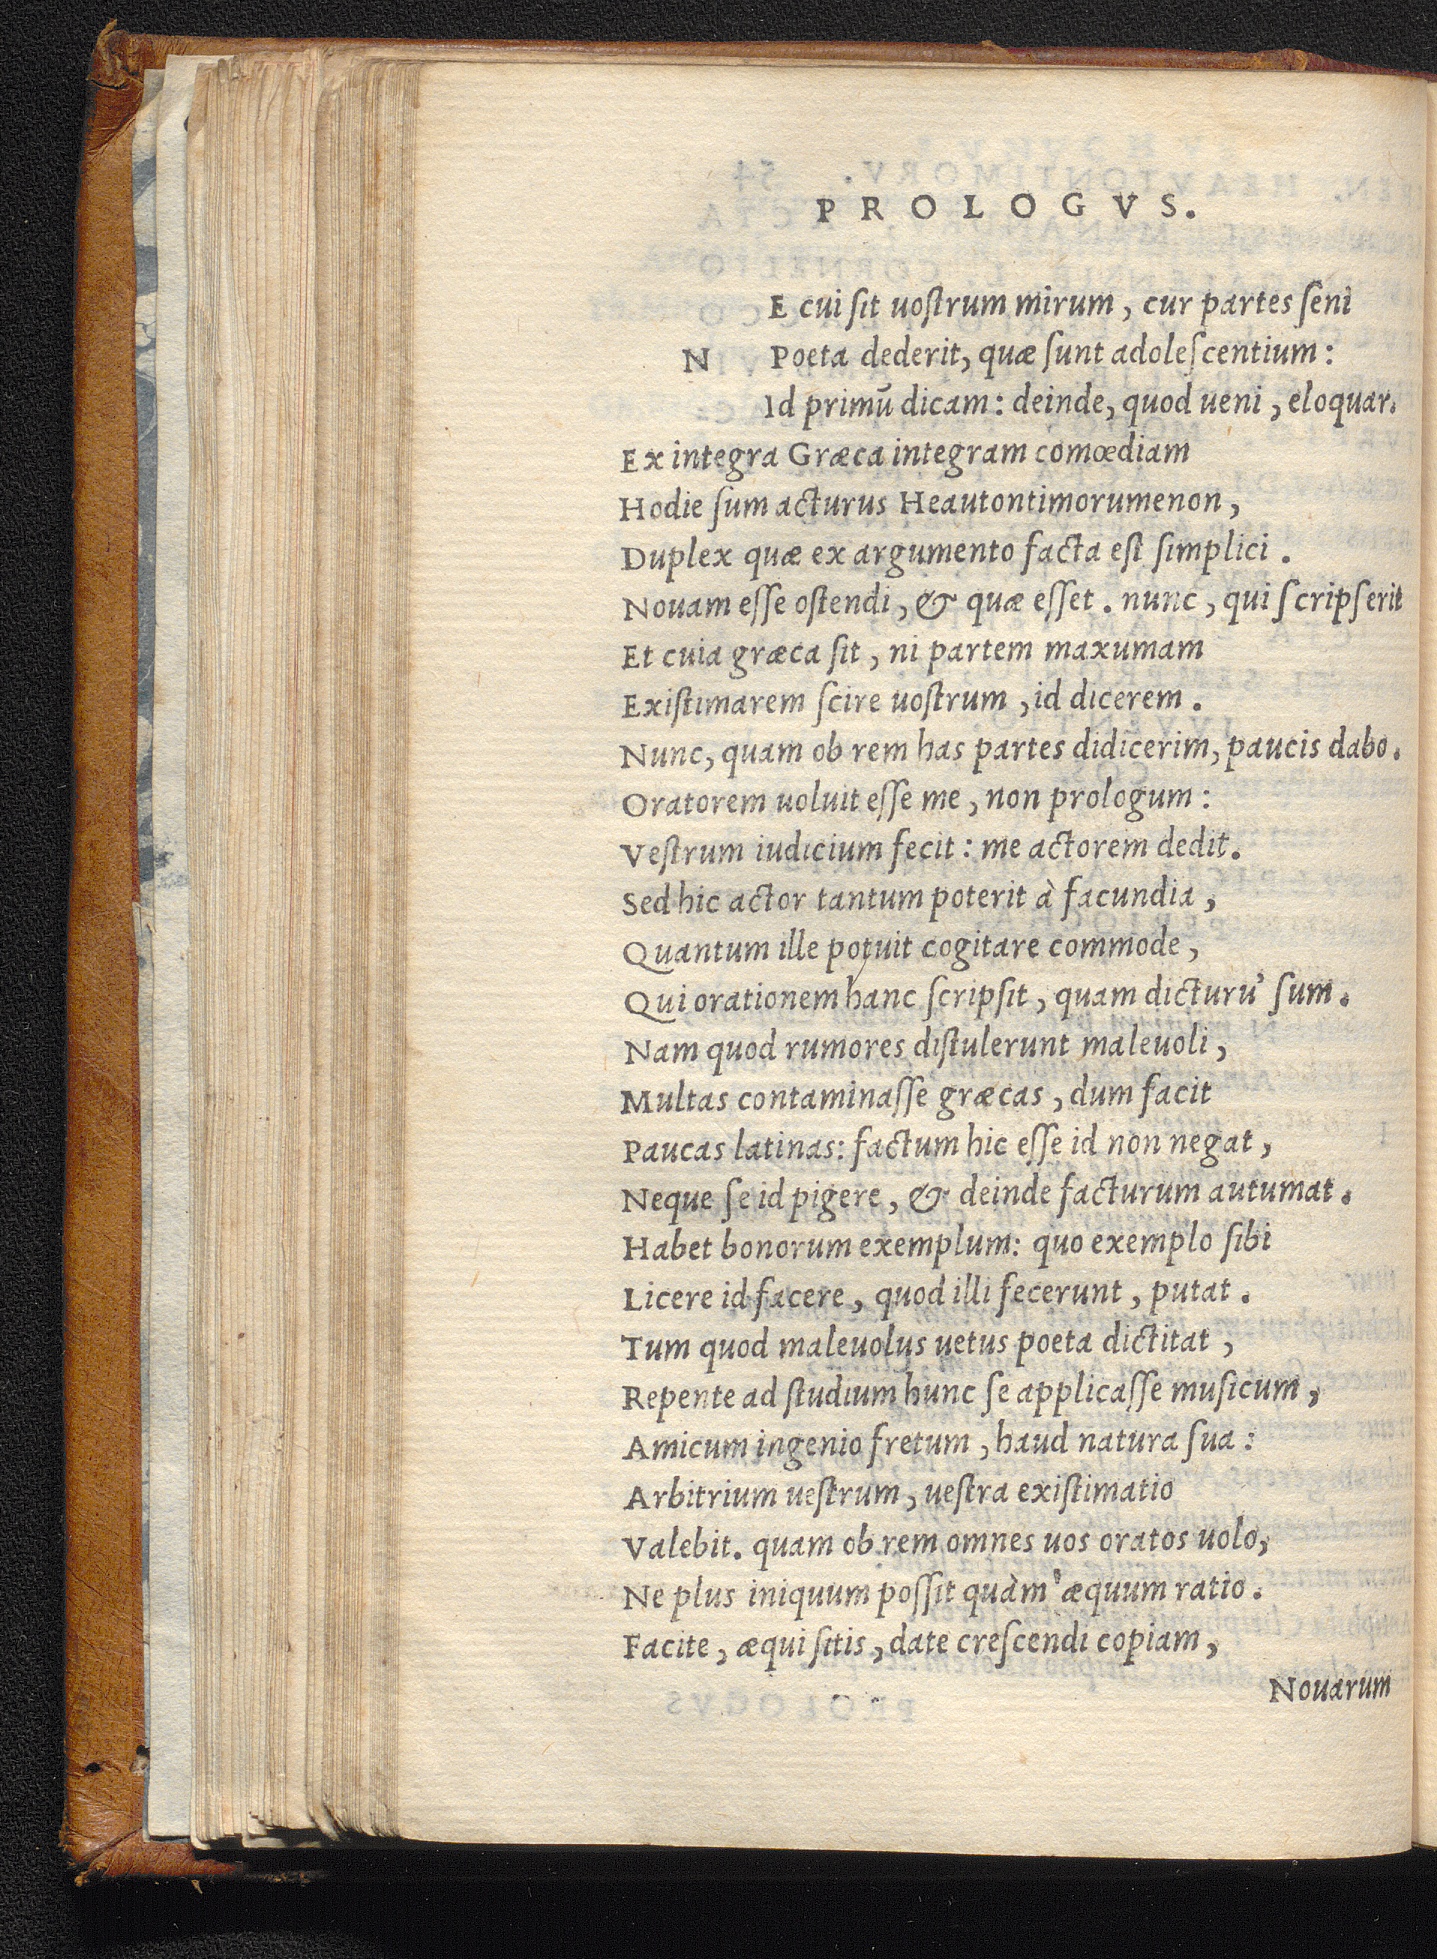 PROLOGVS.
E cui ſit uoſtrum mirum, cur partes ſeni
N Poeta dederit, quæ ſunt adoleſcentium:
Id primū dicam: deinde, quod ueni, eloquar.
Ex integra Græca integram comœdiam
Hodie ſum acturus Heautontimorumenon,
Duplex quæ ex argumento facta eſt ſimplici.
Nouam eſſe oſtendi, & quæ eſſet. nunc, qui ſcripſerit
Et cuia græca ſit, ni partem maxumam
Exiſtimarem ſcire uoſtrum, id dicerem.
Nunc, quam ob rem has partes didicerim, paucis dabo.
Oratorem uoluit eſſe me, non prologum:
Veſtrum iudicium fecit: me actorem dedit.
Sed hic actor tantum poterit à facundia,
Quantum ille potuit cogitare commode,
Qui orationem hanc ſcripſit, quam dicturu' ſum.
Nam quod rumores diſtulerunt maleuoli,
Multas contaminaſſe græcas, dum facit
Paucas latinas: factum hic eſſe id non negat,
Neque ſe id pigere, & deinde facturum autumat.
Habet bonorum exemplum: quo exemplo ſibi
Licere id facere, quod illi fecerunt, putat.
Tum quod maleuolus uetus poeta dictitat,
Repente ad ſtudium hunc ſe applicaſſe muſicum,
Amicum ingenio fretum, haud natura ſua:
Arbitrium ueſtrum, ueſtra exiſtimatio
Valebit. quam ob rem omnes uos oratos uolo,
Ne plus iniquum poſſit quàm æquum ratio.
Facite, æqui ſitis, date creſcendi copiam,
Nouarum